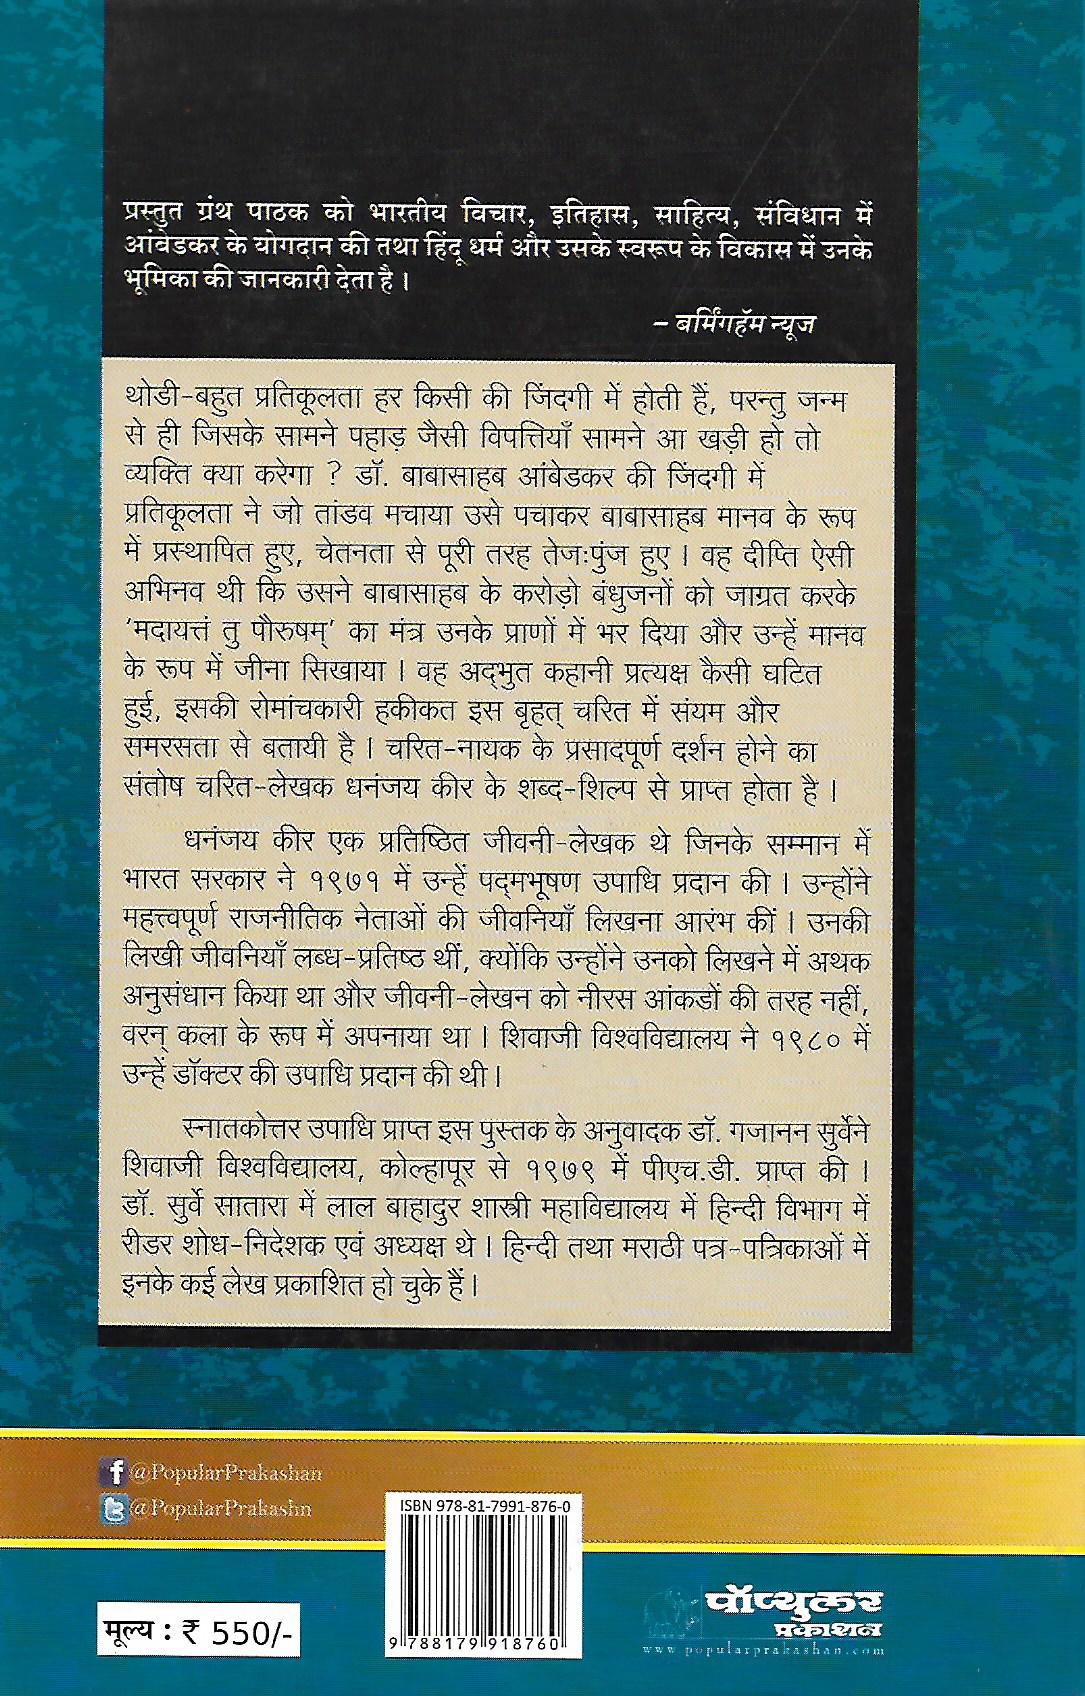 प्रस्तुत ग्रंथ पाठक को भारतीय विचार, इतिहास, साहित्य, संविधान में
आंबेडकर के योगदान की तथा हिंदू धर्म और उसके स्वरूप के विकास में उनके
भूमिका की जानकारी देता है।
– बर्मिंगहॅम न्यूज
थोडी-बहुत प्रतिकूलता हर किसी की जिंदगी में होती हैं, परन्तु जन्म
से ही जिसके सामने पहाड़ जैसी विपत्तियाँ सामने आ खड़ी हो तो
व्यक्ति क्या करेगा ? डॉ. बाबासाहब आंबेडकर की जिंदगी में
प्रतिकूलता ने जो तांडव मचाया उसे पचाकर बाबासाहब मानव के रूप
में प्रस्थापित हुए, चेतनता से पूरी तरह तेजःपुंज हुए । वह दीप्ति ऐसी
अभिनव थी कि उसने बाबासाहब के करोड़ो बंधुजनों को जाग्रत करके
'मदायत्तं तु पौरुषम्' का मंत्र उनके प्राणों में भर दिया और उन्हें मानव
के रूप में जीना सिखाया । वह अद्‌भुत कहानी प्रत्यक्ष कैसी घटित
हुई, इसकी रोमांचकारी हकीकत इस बृहत् चरित में संयम और
समरसता से बतायी है । चरित-नायक के प्रसादपूर्ण दर्शन होने का
संतोष चरित-लेखक धनंजय कीर के शब्द-शिल्प से प्राप्त होता है ।
धनंजय कीर एक प्रतिष्ठित जीवनी-लेखक थे जिनके सम्मान में
भारत सरकार ने १९७१ में उन्हें पद्‌मभूषण उपाधि प्रदान की । उन्होंने
महत्त्वपूर्ण राजनीतिक नेताओं की जीवनियाँ लिखना आरंभ कीं । उनकी
लिखी जीवनियाँ लब्ध-प्रतिष्ठ थीं, क्योंकि उन्होंने उनको लिखने में अथक
अनुसंधान किया था और जीवनी-लेखन को नीरस आंकडों की तरह नहीं,
वरन् कला के रूप में अपनाया था । शिवाजी विश्वविद्यालय ने १९८० में
उन्हें डॉक्टर की उपाधि प्रदान की थी ।
स्नातकोत्तर उपाधि प्राप्त इस पुस्तक के अनुवादक डॉ. गजानन सुर्वेने
शिवाजी विश्वविद्यालय, कोल्हापूर से १९७९ में पीएच.डी. प्राप्त की ।
डॉ. सुर्वे सातारा में लाल बाहादुर शास्त्री महाविद्यालय में हिन्दी विभाग में
रीडर शोध-निदेशक एवं अध्यक्ष थे । हिन्दी तथा मराठी पत्र-पत्रिकाओं में
इनके कई लेख प्रकाशित हो चुके हैं ।
@PopularPrakashan
@PopularPrakashn
ISBN 978-81-7991-876-0
9 788179 918760
मूल्य : ₹ 550/-
पॉप्युलर
प्रकाशन
www.popularprakashan.com